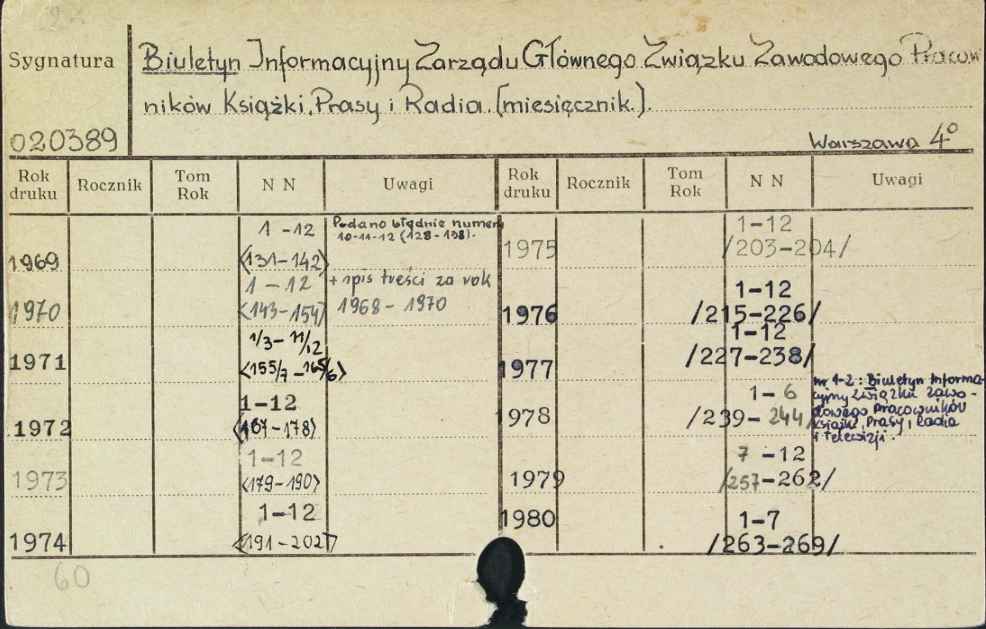 Sygnatura
Biuletyn Informacyjny Zarządu Głównego Związku Zawodowego Pracow
ników Książki, Prasy i Radia. (miesięcznik.).
020389
Warszawa 4°
Rok druku Rocznik Tom Rok N N Uwagi Rok druku Rocznik Tom Rok N N Uwagi
1969 1-12 <131-142> Podano błędnie numery 10-11-12 (128-138).
1970 1-12 <143-154> + spis treści za rok 1968-1970
1971 1/3-11/12 <155/7-165/6>
1972 1-12 <167-178>
1973 1-12 <179-190>
1974 1-12 <191-202>
1975 1-12 /203-204/
1976 1-12 /215-226/
1977 1-12 /227-238/
1978 1-6 /239-244/ nr 1-2: Biuletyn Informa-
cyjny Związku Zawo-
dowego Pracowników
Książki, Prasy, Radia
i Telewizji.
1979 7-12 /257-262/
1980 1-7 /263-269/
60